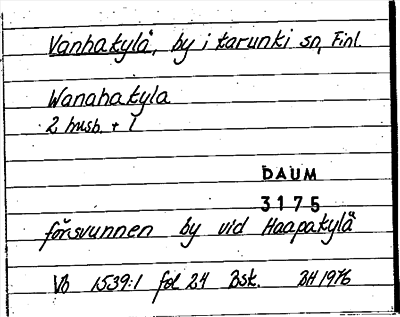 Vanhakylä, by i Karunki sn, Finl.
Wanahakyla
2 hush. + 1
DAUM
3175
försvunnen by vid Haapakylä
Vb 1539:1 fol 24 Bsk. BH 1976